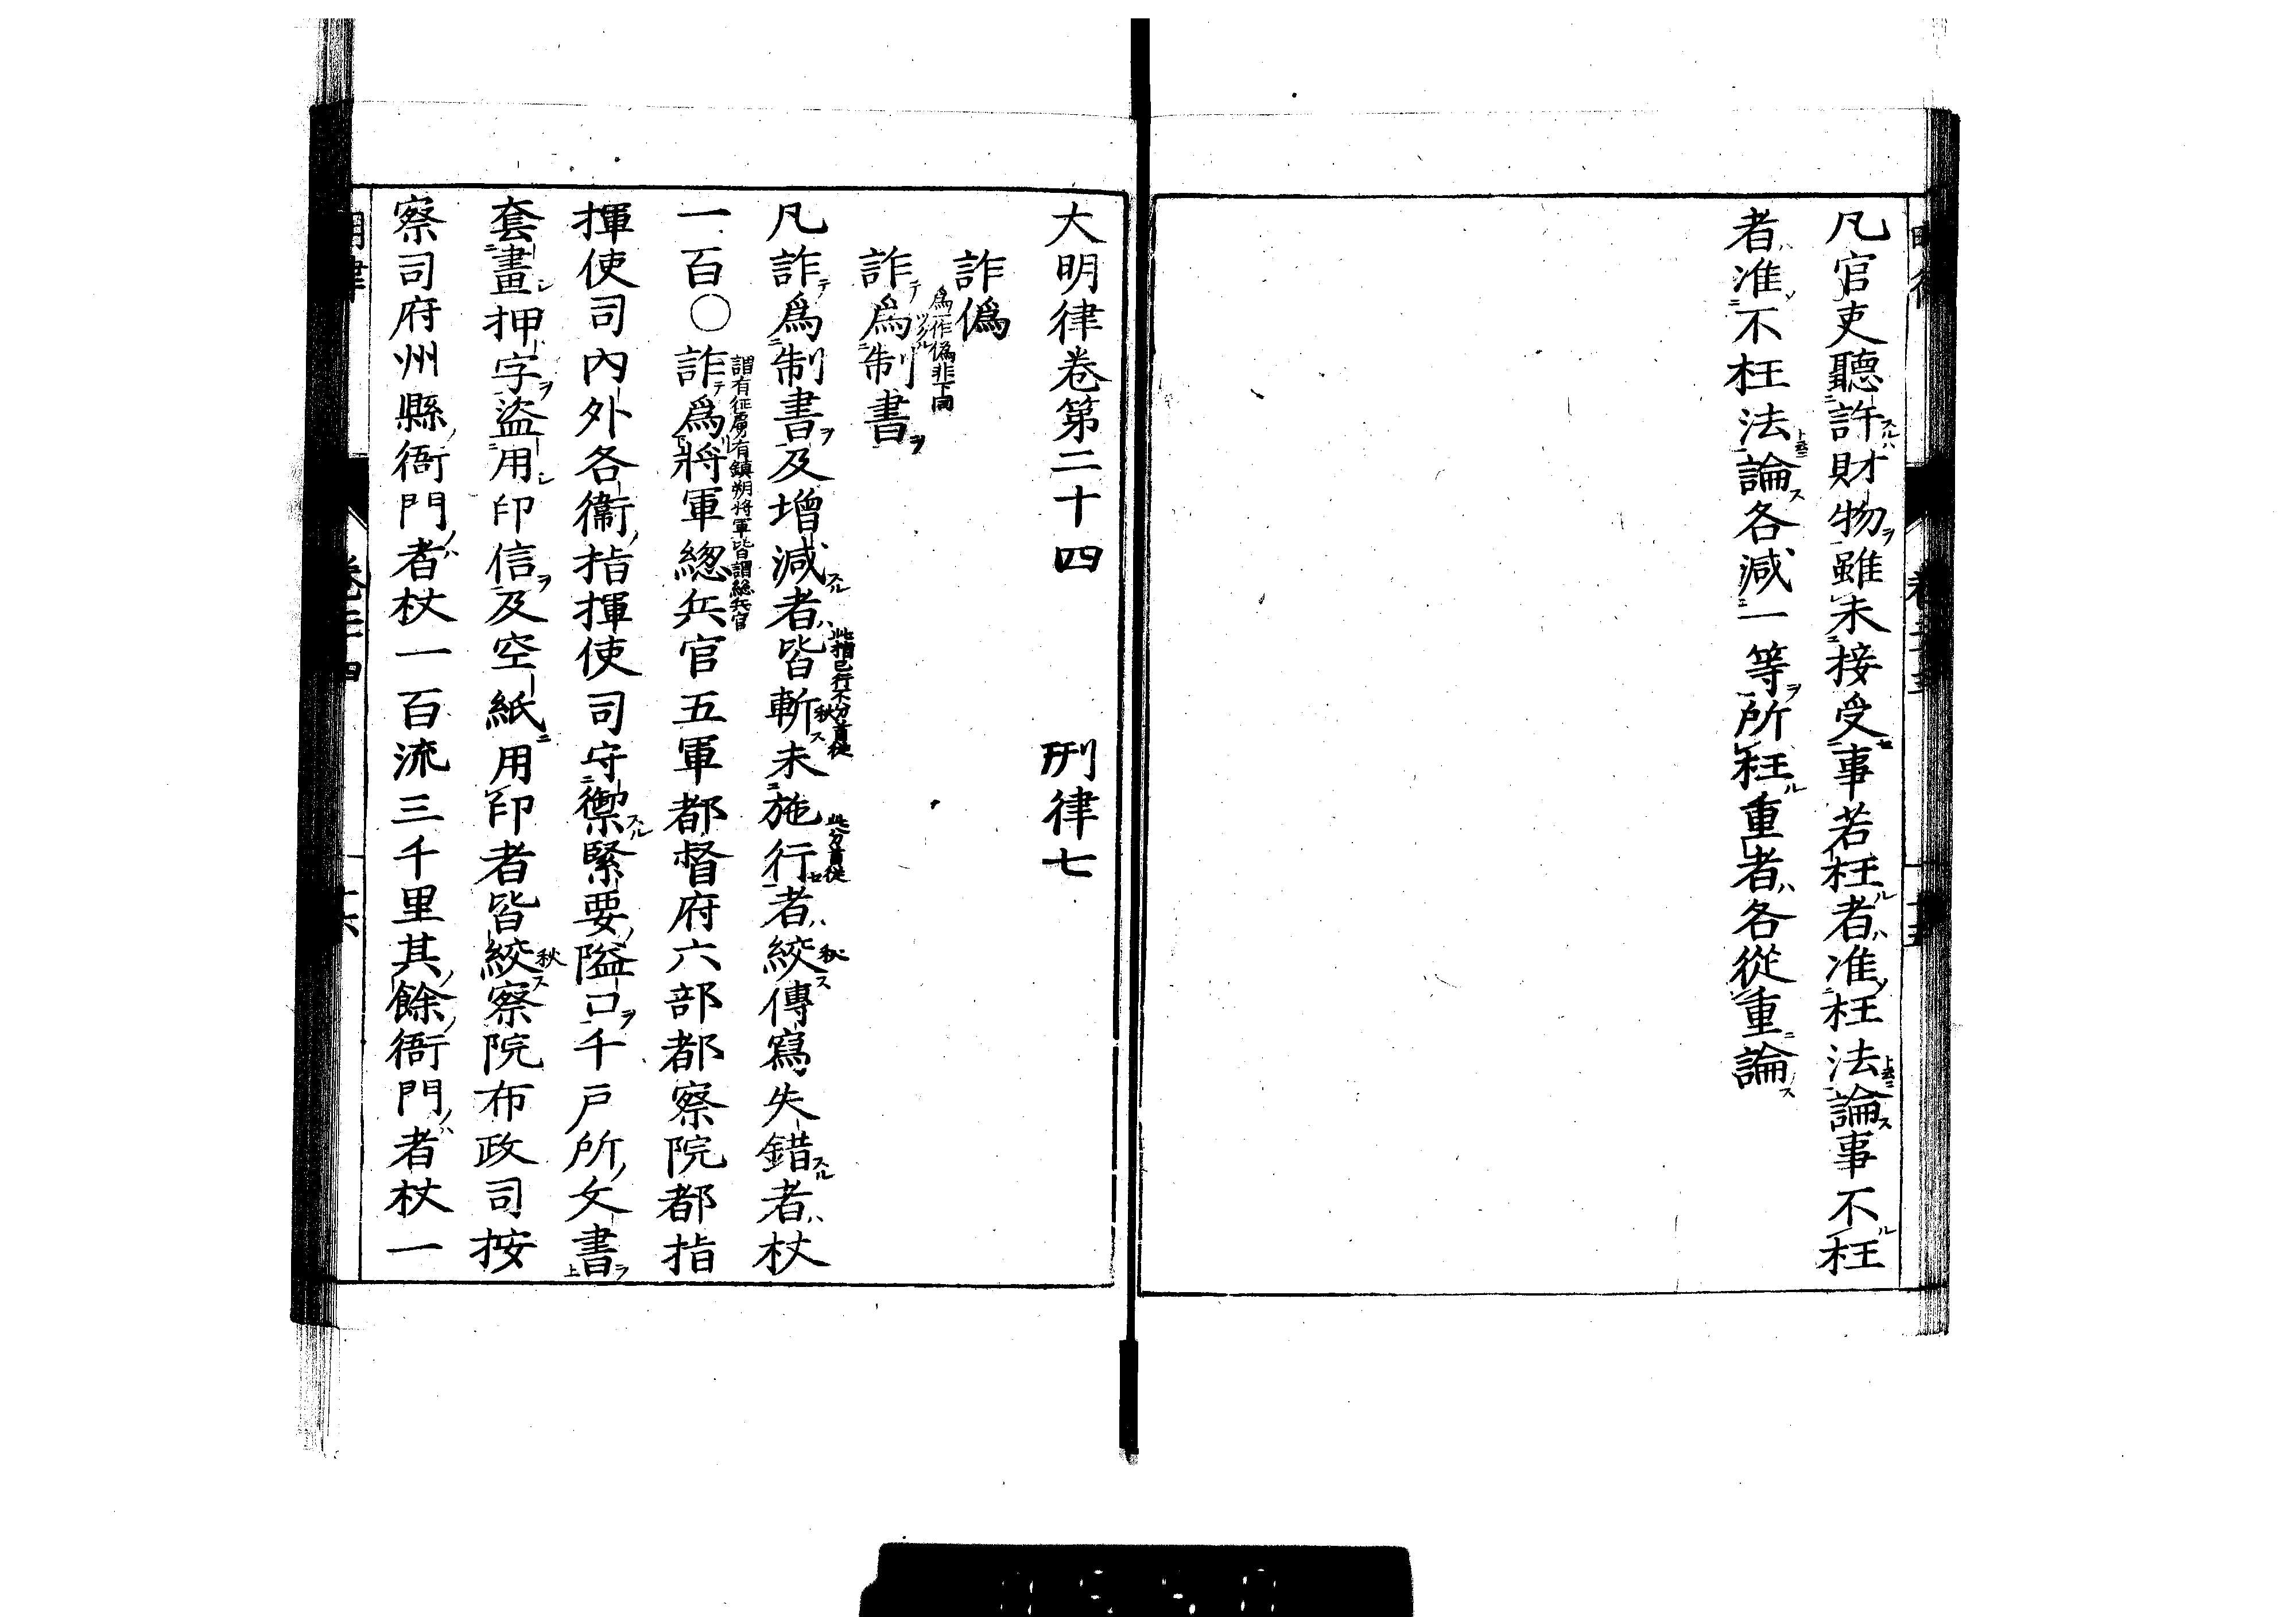 凡官吏聽許財物雖未接受事若枉者准枉法論事不枉
者准不枉法論各減一等所枉重者各從重論
大明律卷第二十四　刑律七
詐僞
爲一作僞非下同
詐爲制書
凡詐爲制書及增減者皆斬未施行者絞傳寫失錯者杖
此指已行不分首從
此分首從
一百○詐爲將軍總兵官五軍都督府六部都察院都指
謂有征虜有鎮朔将軍皆謂総兵官
揮使司內外各衞指揮使司守禦緊要隘口千戸所文書
套畫押字盜用印信及空紙用印者皆絞察院布政司按
察司府州縣衙門者杖一百流三千里其餘衙門者杖一